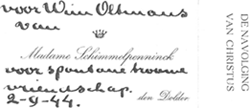 voor Wim Oltmans
van
Madame Schimmelpenninck
voor spontane trouwe
vriendschap.
2-9-44.
den Dolder
DE NAVOLGING
VAN CHRISTUS